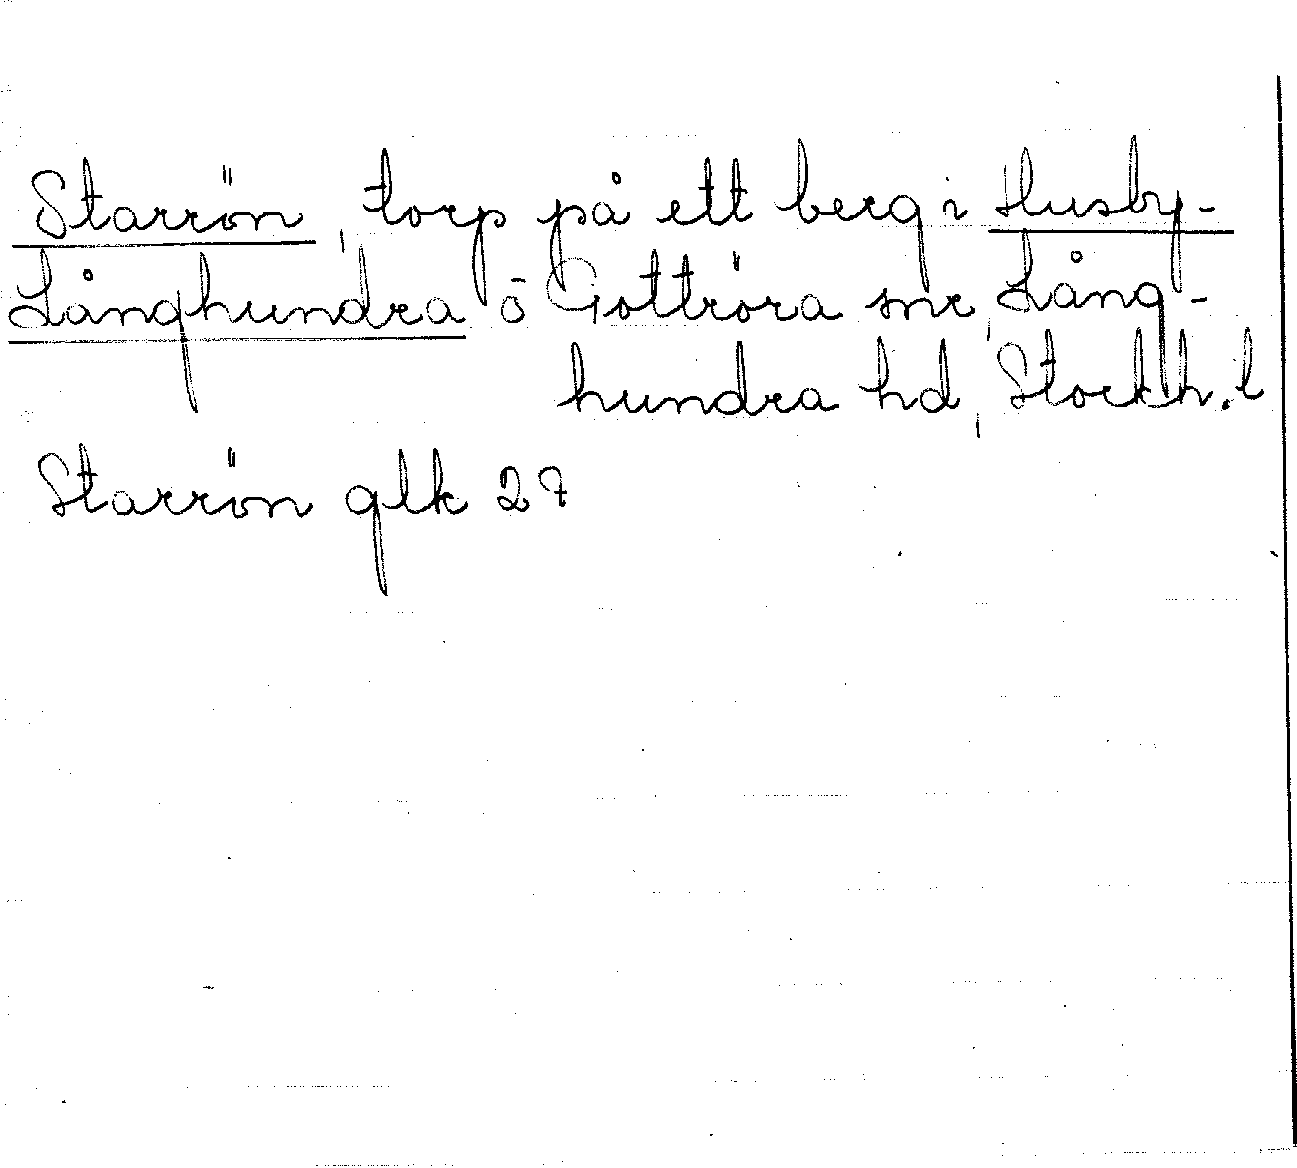 Starrön, torp på ett berg i Husby-
Långhundra o Gottröra snr, Lång-
hundra hd, Stockh. l
Starrön glk 27